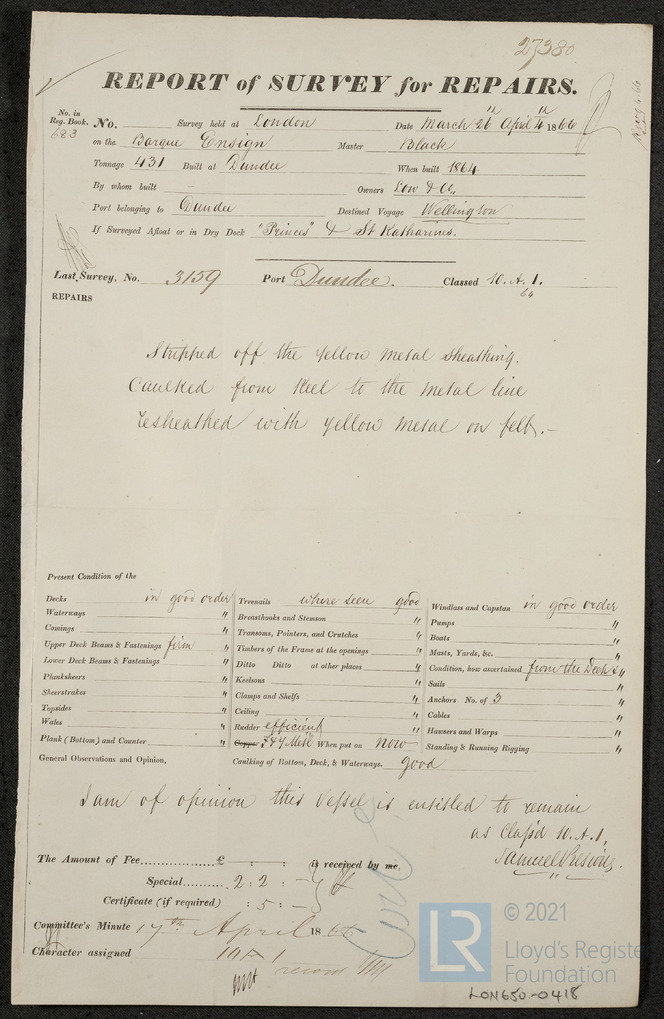 27380
REPORT of SURVEY for REPAIRS.
No. in Reg. Book. 683
No. Survey held at London Date March 26th April 4th 1866
on the Barque Ensign Master Black
Tonnage 431 Built at Dundee When built 1864
By whom built – Owners Low & Co,
Port belonging to Dundee Destined Voyage Wellington
If Surveyed Afloat or in Dry Dock "Princes" & St Katharines.
Last Survey, No. 3159 Port Dundee. Classed 10. A. 1.
64
REPAIRS
Stripped off the yellow metal sheathing.
Caulked from keel to the metal line
resheathed with yellow metal on felt.-
Present Condition of the
Decks in good order
Waterways "
Comings "
Upper Deck Beams & Fastenings firm "
Lower Deck Beams & Fastenings "
Planksheers "
Sheerstrakes "
Topsides "
Wales "
Plank (Bottom) and Counter "
General Observations and Opinion,
Treenails where seen good
Breasthooks and Stemson "
Transoms, Pointers, and Crutches "
Timbers of the Frame at the openings "
Ditto Ditto at other places "
Keelsons "
Clamps and Shelfs "
Ceiling "
Rudder efficient "
Copper When put on now
Caulking of Bottom, Deck, & Waterways. good
Windlass and Capstan in good order
Pumps "
Boats "
Masts, Yards, &c. "
Condition, how ascertained from the Deck & "
Sails "
Anchors No. of 3 "
Cables "
Hawsers and Warps "
Standing & Running Rigging "
I am of opinion this vessel is entitled to remain
as Class'd 10. A. 1,
The Amount of Fee £ – : : is received by me,
Samuel
Special 2 : 2 : –
Certificate (if required) : 5 : –
Committee's Minute 17th April 1866
Character assigned 10 A 1
record
© 2021
LR
Lloyd's Registe
Foundation
LON650-0418